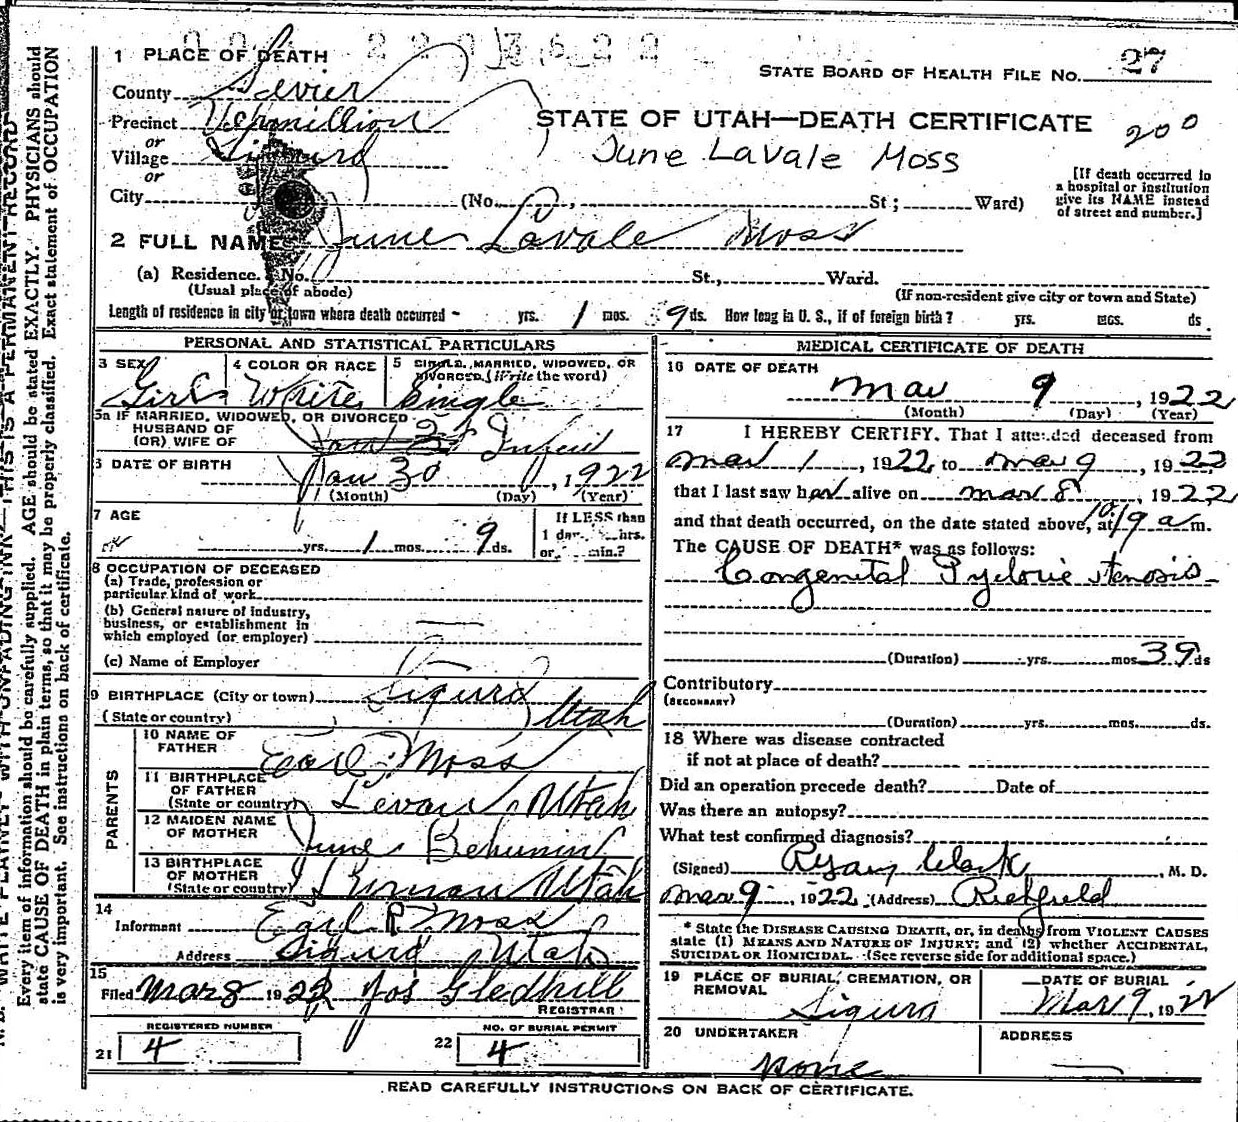 1 PLACE OF DEATH
STATE BOARD OF HEALTH FILE NO. 27
County Sevier
Precinct Vermillion
STATE OF UTAH—DEATH CERTIFICATE 200
or
Village Sigurd
June LaVale Moss
or
City (No. , St; Ward)
[If death occurred in a hospital or institution give its NAME instead of street and number.]
2 FULL NAME June Lavale Moss
(a) Residence. No. St., Ward.
(Usual place of abode) (If non-resident give city or town and State)
Length of residence in city or town where death occurred - yrs. 1 mos. 9 ds. How long in U. S., if of foreign birth? yrs. mcs. ds.
PERSONAL AND STATISTICAL PARTICULARS
3 SEX Girl
4 COLOR OR RACE White
5 SINGLE, MARRIED, WIDOWED, OR DIVORCED. (Write the word) Single
5a IF MARRIED, WIDOWED, OR DIVORCED
HUSBAND OF
(OR) WIFE OF
6 DATE OF BIRTH
Jan 30, 1922
(Month) (Day) (Year)
7 AGE
yrs. 1 mos. 9 ds.
If LESS than
1 day hrs.
or min.?
8 OCCUPATION OF DECEASED
(a) Trade, profession or
particular kind of work
(b) General nature of industry,
business, or establishment in
which employed (or employer)
(c) Name of Employer
9 BIRTHPLACE (City or town) Sigurd
(State or country) Utah
PARENTS
10 NAME OF
FATHER Earl Moss
11 BIRTHPLACE
OF FATHER
(State or country) Levan, Utah
12 MAIDEN NAME
OF MOTHER June Behunin
13 BIRTHPLACE
OF MOTHER
(State or country) Utah
14
Informant Earl R Moss
Address Sigurd Utah
15
Filed Mar 8 1922 Jos Gledhill
REGISTRAR
REGISTERED NUMBER
21 4
NO. OF BURIAL PERMIT
22 4
MEDICAL CERTIFICATE OF DEATH
16 DATE OF DEATH
Mar 9, 1922
(Month) (Day) (Year)
17 I HEREBY CERTIFY. That I attended deceased from
Mar 1, 1922 to Mar 9, 1922
that I last saw her alive on Mar 8, 1922
and that death occurred, on the date stated above, at a m.
The CAUSE OF DEATH* was as follows:
Congenital Pyloric stenosis
(Duration) yrs. mos 39 ds
Contributory
(SECONDARY)
(Duration) yrs. mos. ds.
18 Where was disease contracted
if not at place of death?
Did an operation precede death? Date of
Was there an autopsy?
What test confirmed diagnosis?
(Signed) Clark, M. D.
Mar 9, 1922 (Address) Richfield
* State the DISEASE CAUSING DEATH, or, in deaths from VIOLENT CAUSES
state (1) MEANS AND NATURE OF INJURY; and (2) whether ACCIDENTAL,
SUICIDAL OR HOMICIDAL. (See reverse side for additional space.)
19 PLACE OF BURIAL, CREMATION, OR
REMOVAL
Sigurd
DATE OF BURIAL
Mar 9, 1922
20 UNDERTAKER
None
ADDRESS
READ CAREFULLY INSTRUCTIONS ON BACK OF CERTIFICATE.
WRITE PLAINLY WITH UNFADING INK—THIS IS A PERMANENT RECORD
Every item of information should be carefully supplied. AGE should be stated EXACTLY. PHYSICIANS should
state CAUSE OF DEATH in plain terms, so that it may be properly classified. Exact statement of OCCUPATION
is very important. See instructions on back of certificate.